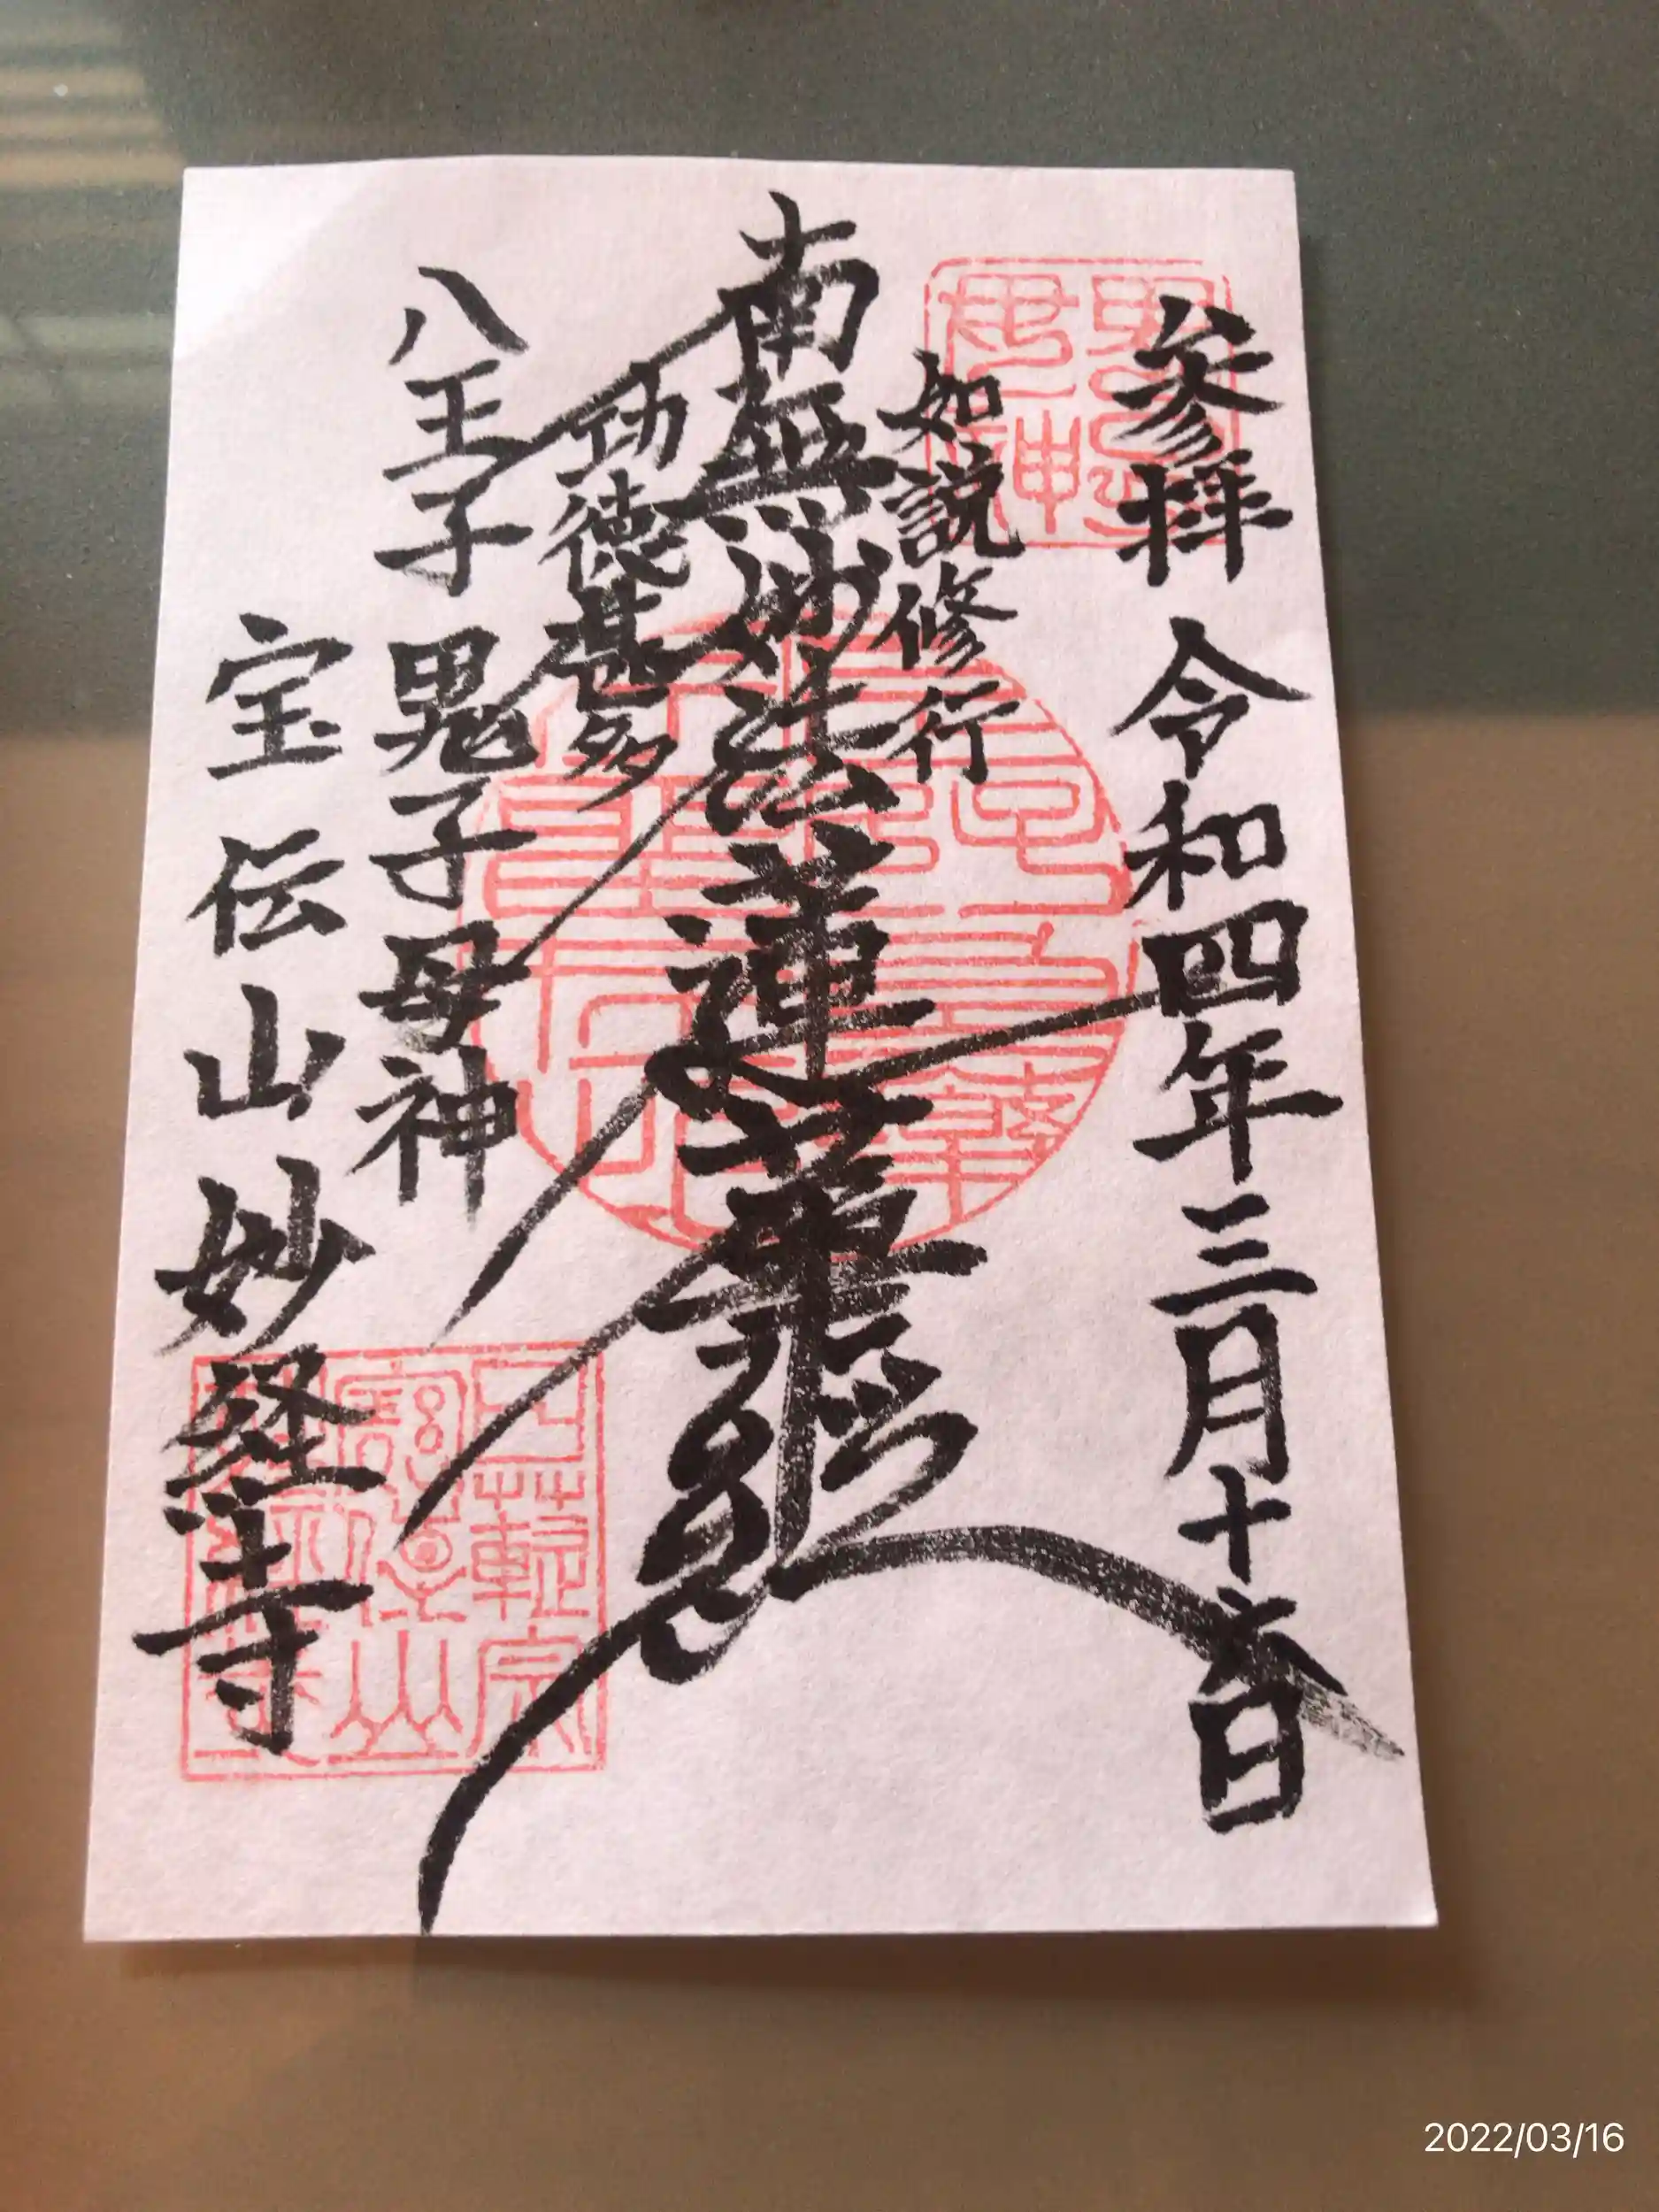 参拝 令和四年三月十六日
如説修行
南無妙法蓮華経
功徳甚多
八王子 鬼子母神
宝伝山 妙経寺
鬼子母神
日蓮宗
寳傳山
妙経寺
2022/03/16